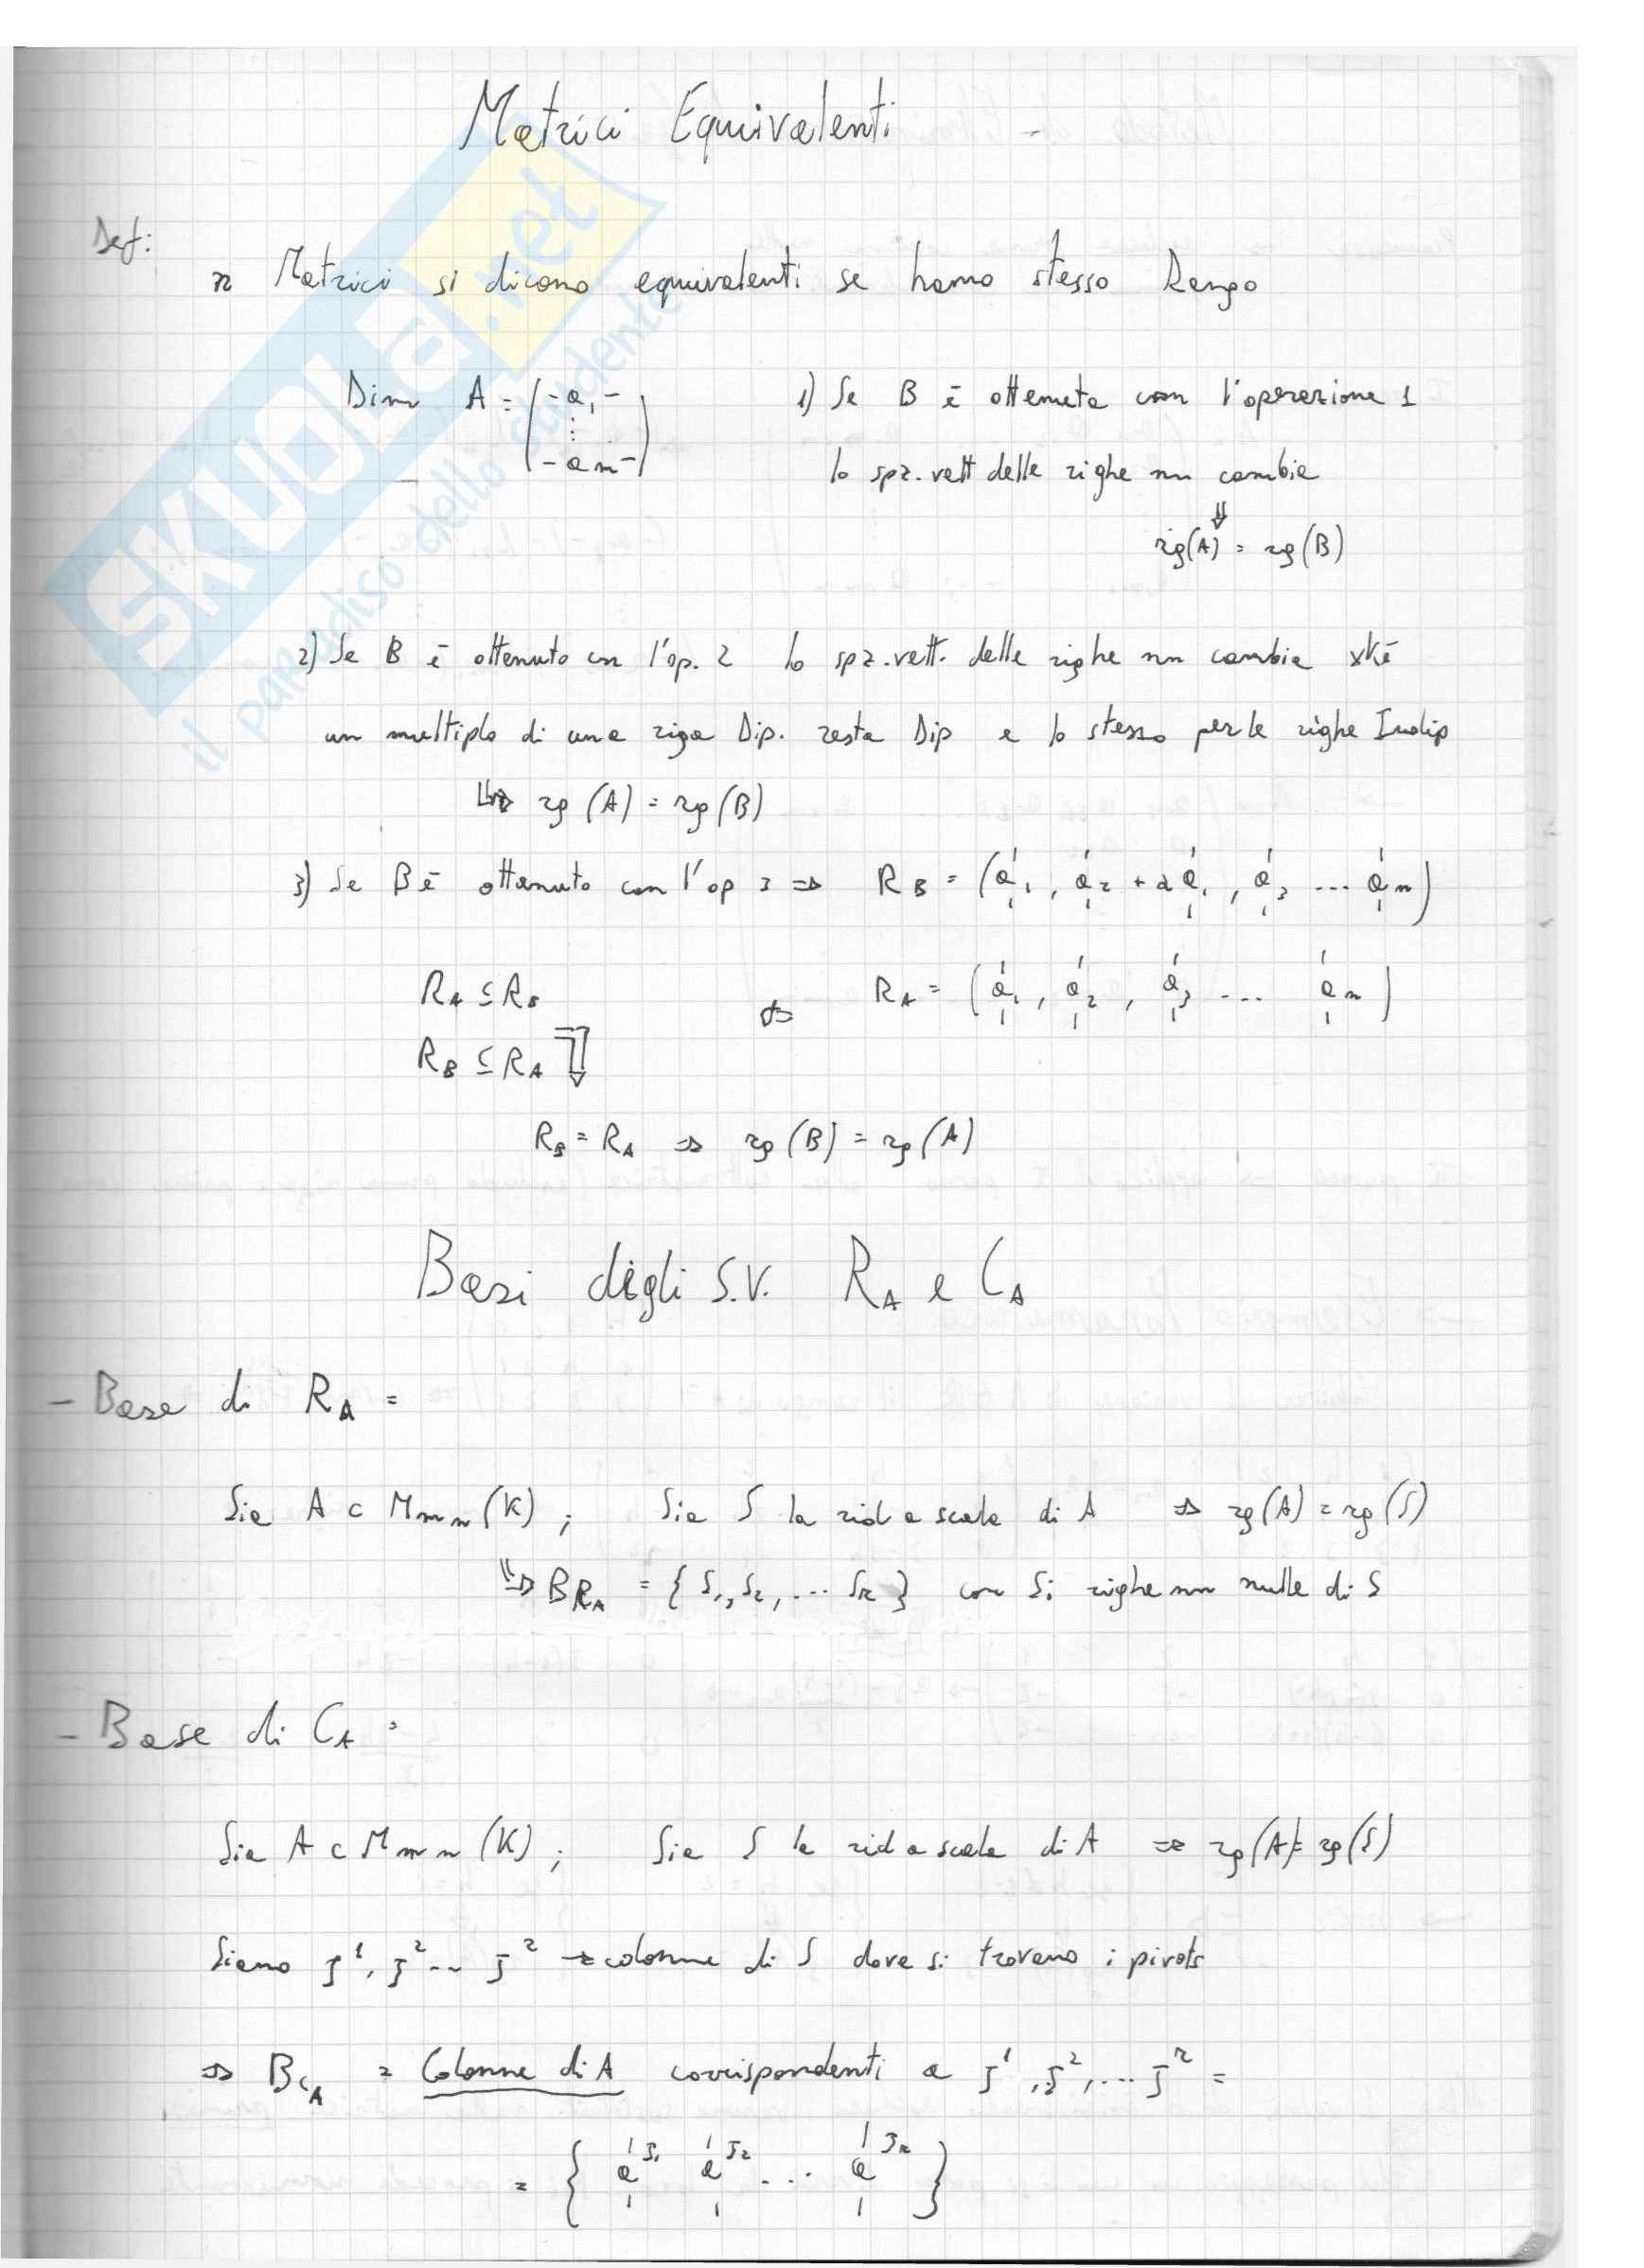 Matrici Equivalenti
Def:
n Matrici si dicono equivalenti se hanno stesso Rango
Dim A = (-a1- ⋮ -am-)
1) Se B è ottenuta con l'operazione 1
lo spz. vett delle righe nn cambia
⇓
rg(A) = rg(B)
2) Se B è ottenuto con l'op. 2 lo spz. vett. delle righe nn cambia xké
un multiplo di una riga Dip. resta Dip e lo stesso per le righe Indip
⇒ rg(A) = rg(B)
3) Se B è ottenuto con l'op 3 ⇒ RB = (a1, a2 + αa1, a3 ... am)
RA ⊆ RB
RA = (a1, a2, a3 ... am)
RB ⊆ RA
RB = RA ⇒ rg(B) = rg(A)
Basi degli S.V. RA e CA
- Base di RA =
Sia A ⊂ Mmn(K); Sia S la rid a scala di A ⇒ rg(A) = rg(S)
⇒ BRA = {S1, S2, ... Sr} con Si righe nn nulle di S
- Base di CA =
Sia A ⊂ Mmn(K); Sia S la rid a scala di A ⇒ rg(A) = rg(S)
Siano J¹, J² ... Jʳ → colonne di S dove si trovano i pivots
⇒ BCA = Colonne di A corrispondenti a J¹, J², ... Jʳ =
= {a^J1 a^J2 ... a^Jr}
SKUOLA.net
il paradiso dello studente